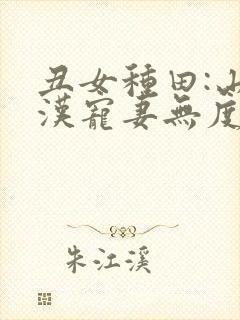 丑女種田:山
漢寵妻無度
朱江溪